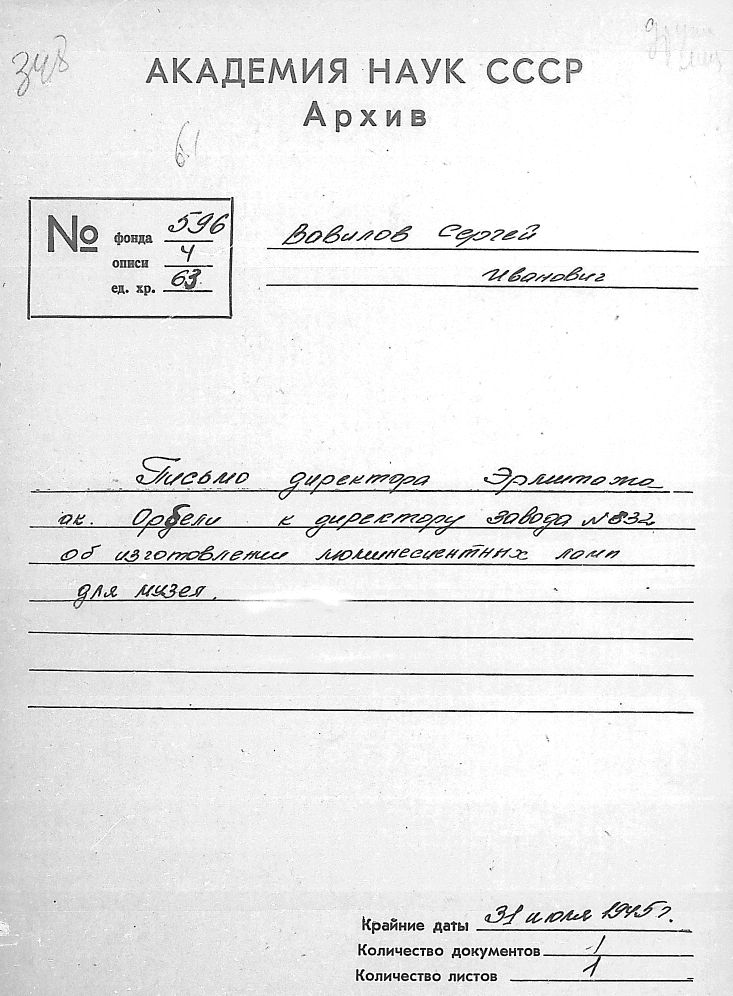 348
АКАДЕМИЯ НАУК СССР
Архив
61
№ фонда 596
описи 4
ед. хр. 63
Вавилов Сергей
Иванович
Письмо директора Эрмитажа
ак. Орбели к директору завода №832
об изготовлении люминесцентных ламп
для музея.
Крайние даты 31 июля 1945 г.
Количество документов 1
Количество листов 1